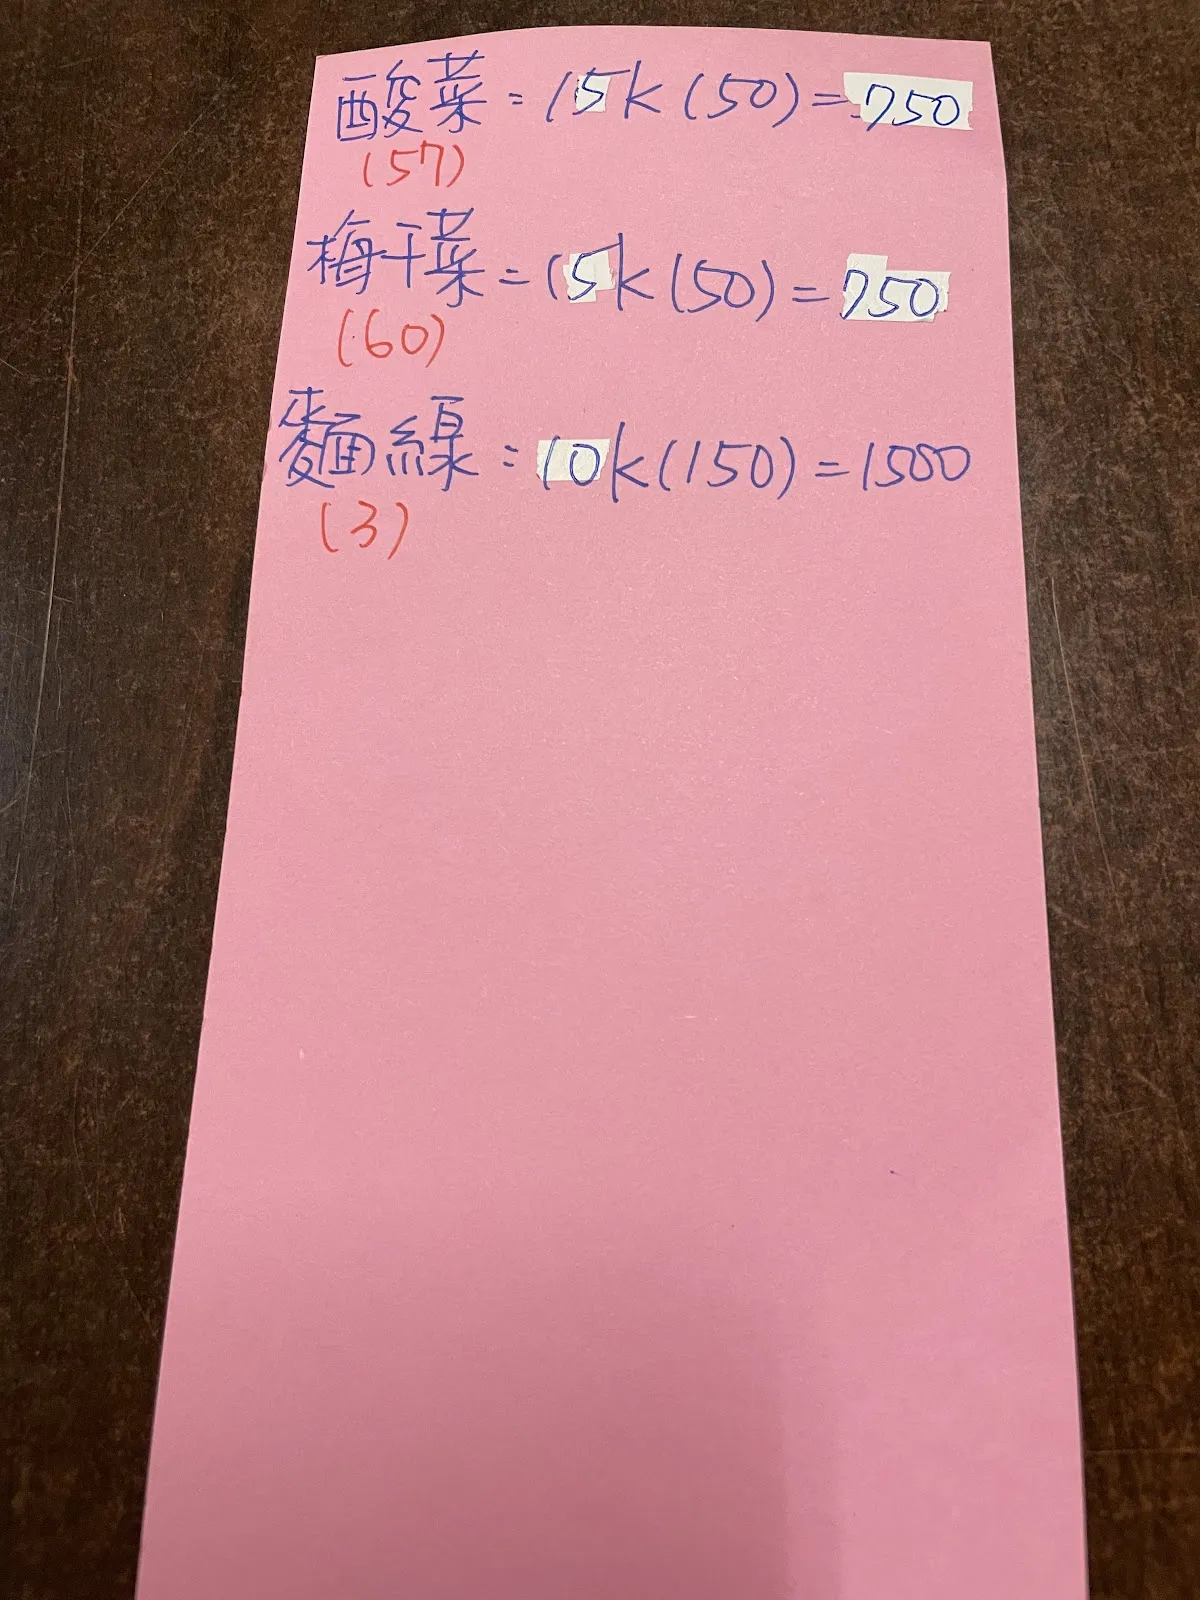 酸菜=15k(50)=750
(57)
梅干菜=15k(50)=750
(60)
麵線=10k(150)=1500
(3)